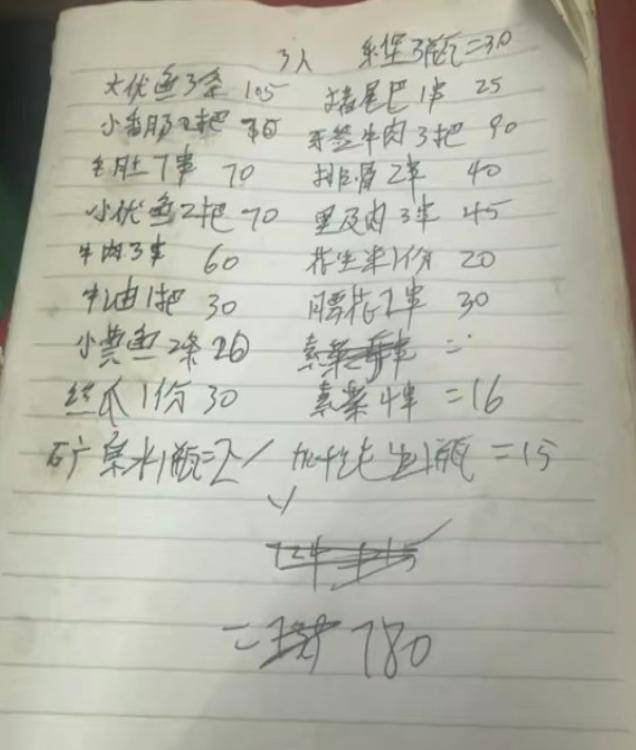 3人 乐堡3瓶=30
大优鱼3条 105 猪尾巴1串 25
小香肠2把 牙签牛肉3把 90
毛肚7串 70 排骨2串 40
小优鱼2把 70 里及肉3串 45
牛肉3串 60 花生米1份 20
牛油1把 30 腰花2串 30
小黄鱼2条 20 素菜 =
丝瓜1份 30 素菜4串 =16
矿泉水1瓶=2 1瓶 =15
= 780